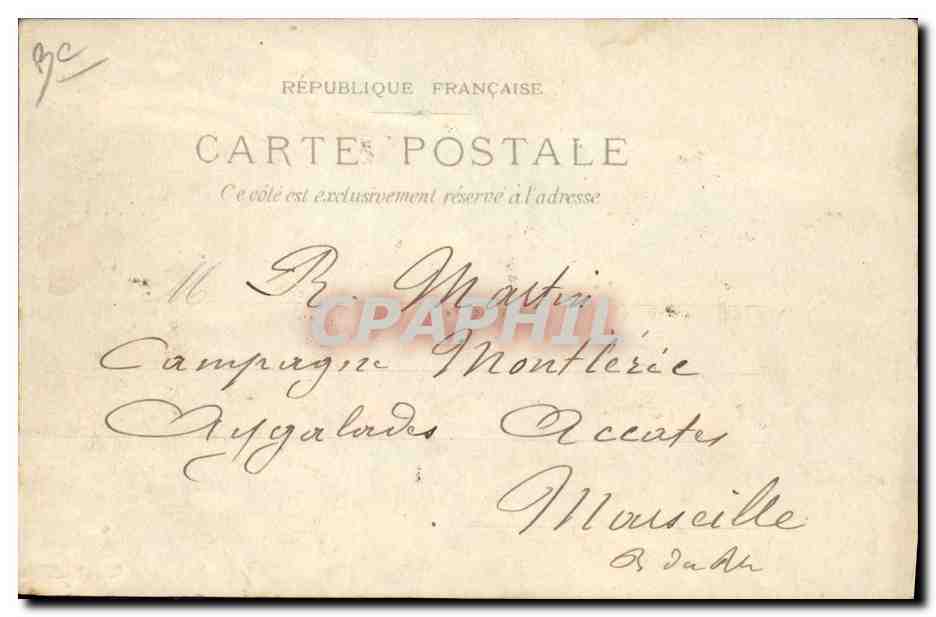 RÉPUBLIQUE FRANÇAISE
CARTE POSTALE
Ce côté est exclusivement réservé à l'adresse
M R. Martin
CPAPHIL
Campagne Montlérie
Aygalades Accates
Marseille
B du Rh